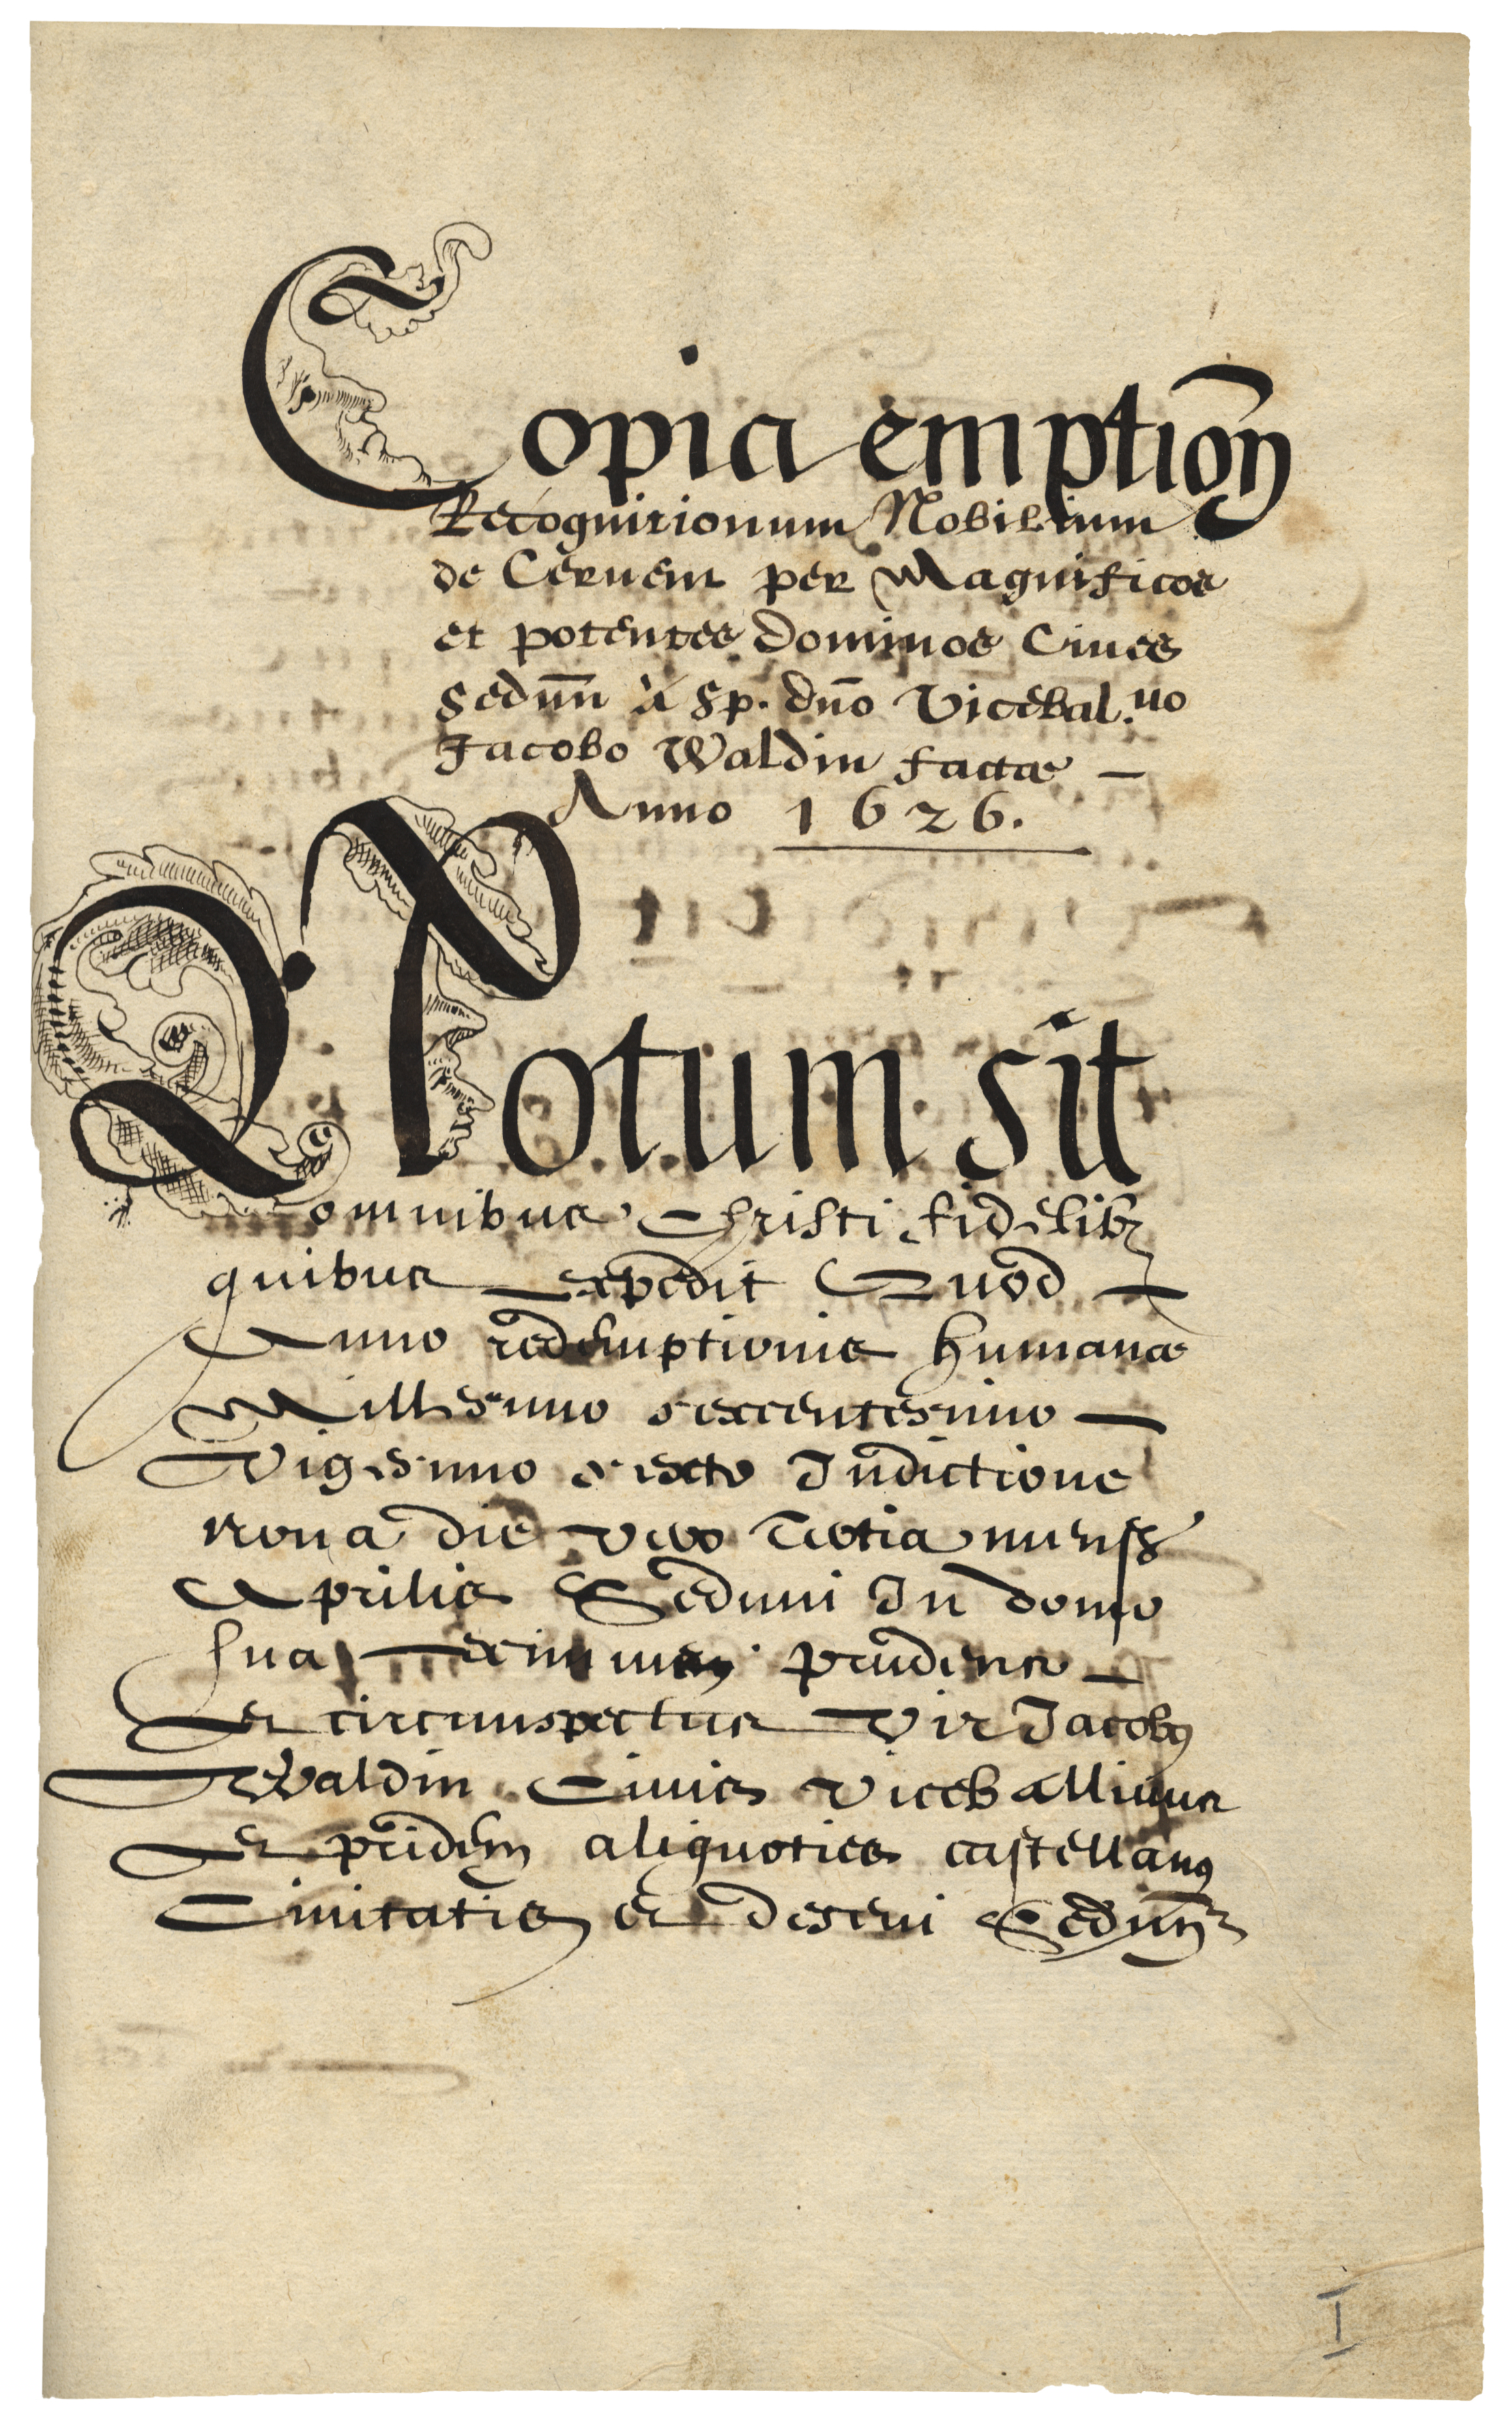 Copia emption̄
Recognitionum Nobilium
de Cervent per Magnificos
et potentes Dominos Cives
Sedun̄ à Sp. dn̄o Vicebal.uo
Jacobo Waldin factæ —
Anno 1626.
Notum sit
omnibus Christi fidelibꝫ
quibus expedit Quod —
Anno redemptionis humanæ
Millesimo sexcentesimo —
Vigesimo sexto Indictione
nona die vero tertia mensis
Aprilis Seduni In domo
sua prudens —
Et circumspectus Vir Jacobꝰ
Waldin Civis viceballivus
Et pridem aliquoties castellanꝰ
Civitatis et deseni Sedun̄
I